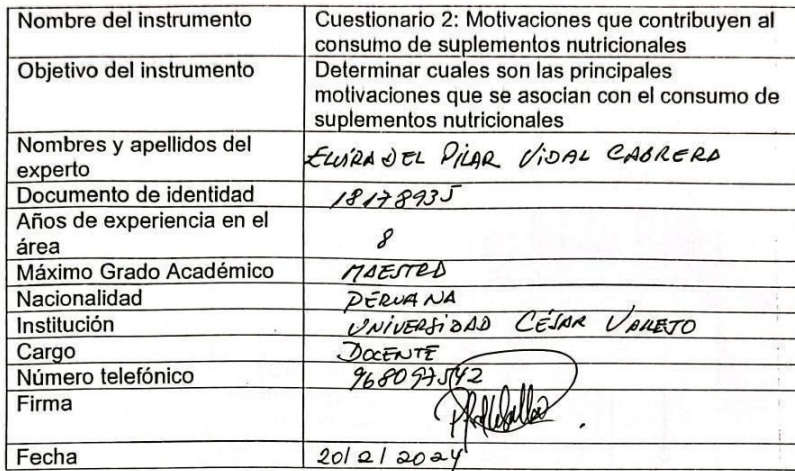 Nombre del instrumento
Cuestionario 2: Motivaciones que contribuyen al
consumo de suplementos nutricionales
Objetivo del instrumento
Determinar cuales son las principales
motivaciones que se asocian con el consumo de
suplementos nutricionales
Nombres y apellidos del
experto
ELVIRA DEL PILAR VIDAL CABRERA
Documento de identidad
18178935
Años de experiencia en el
área
8
Máximo Grado Académico
MAESTRO
Nacionalidad
PERUANA
Institución
UNIVERSIDAD CÉSAR VALLEJO
Cargo
DOCENTE
Número telefónico
968097542
Firma
Fecha
20/2/2024